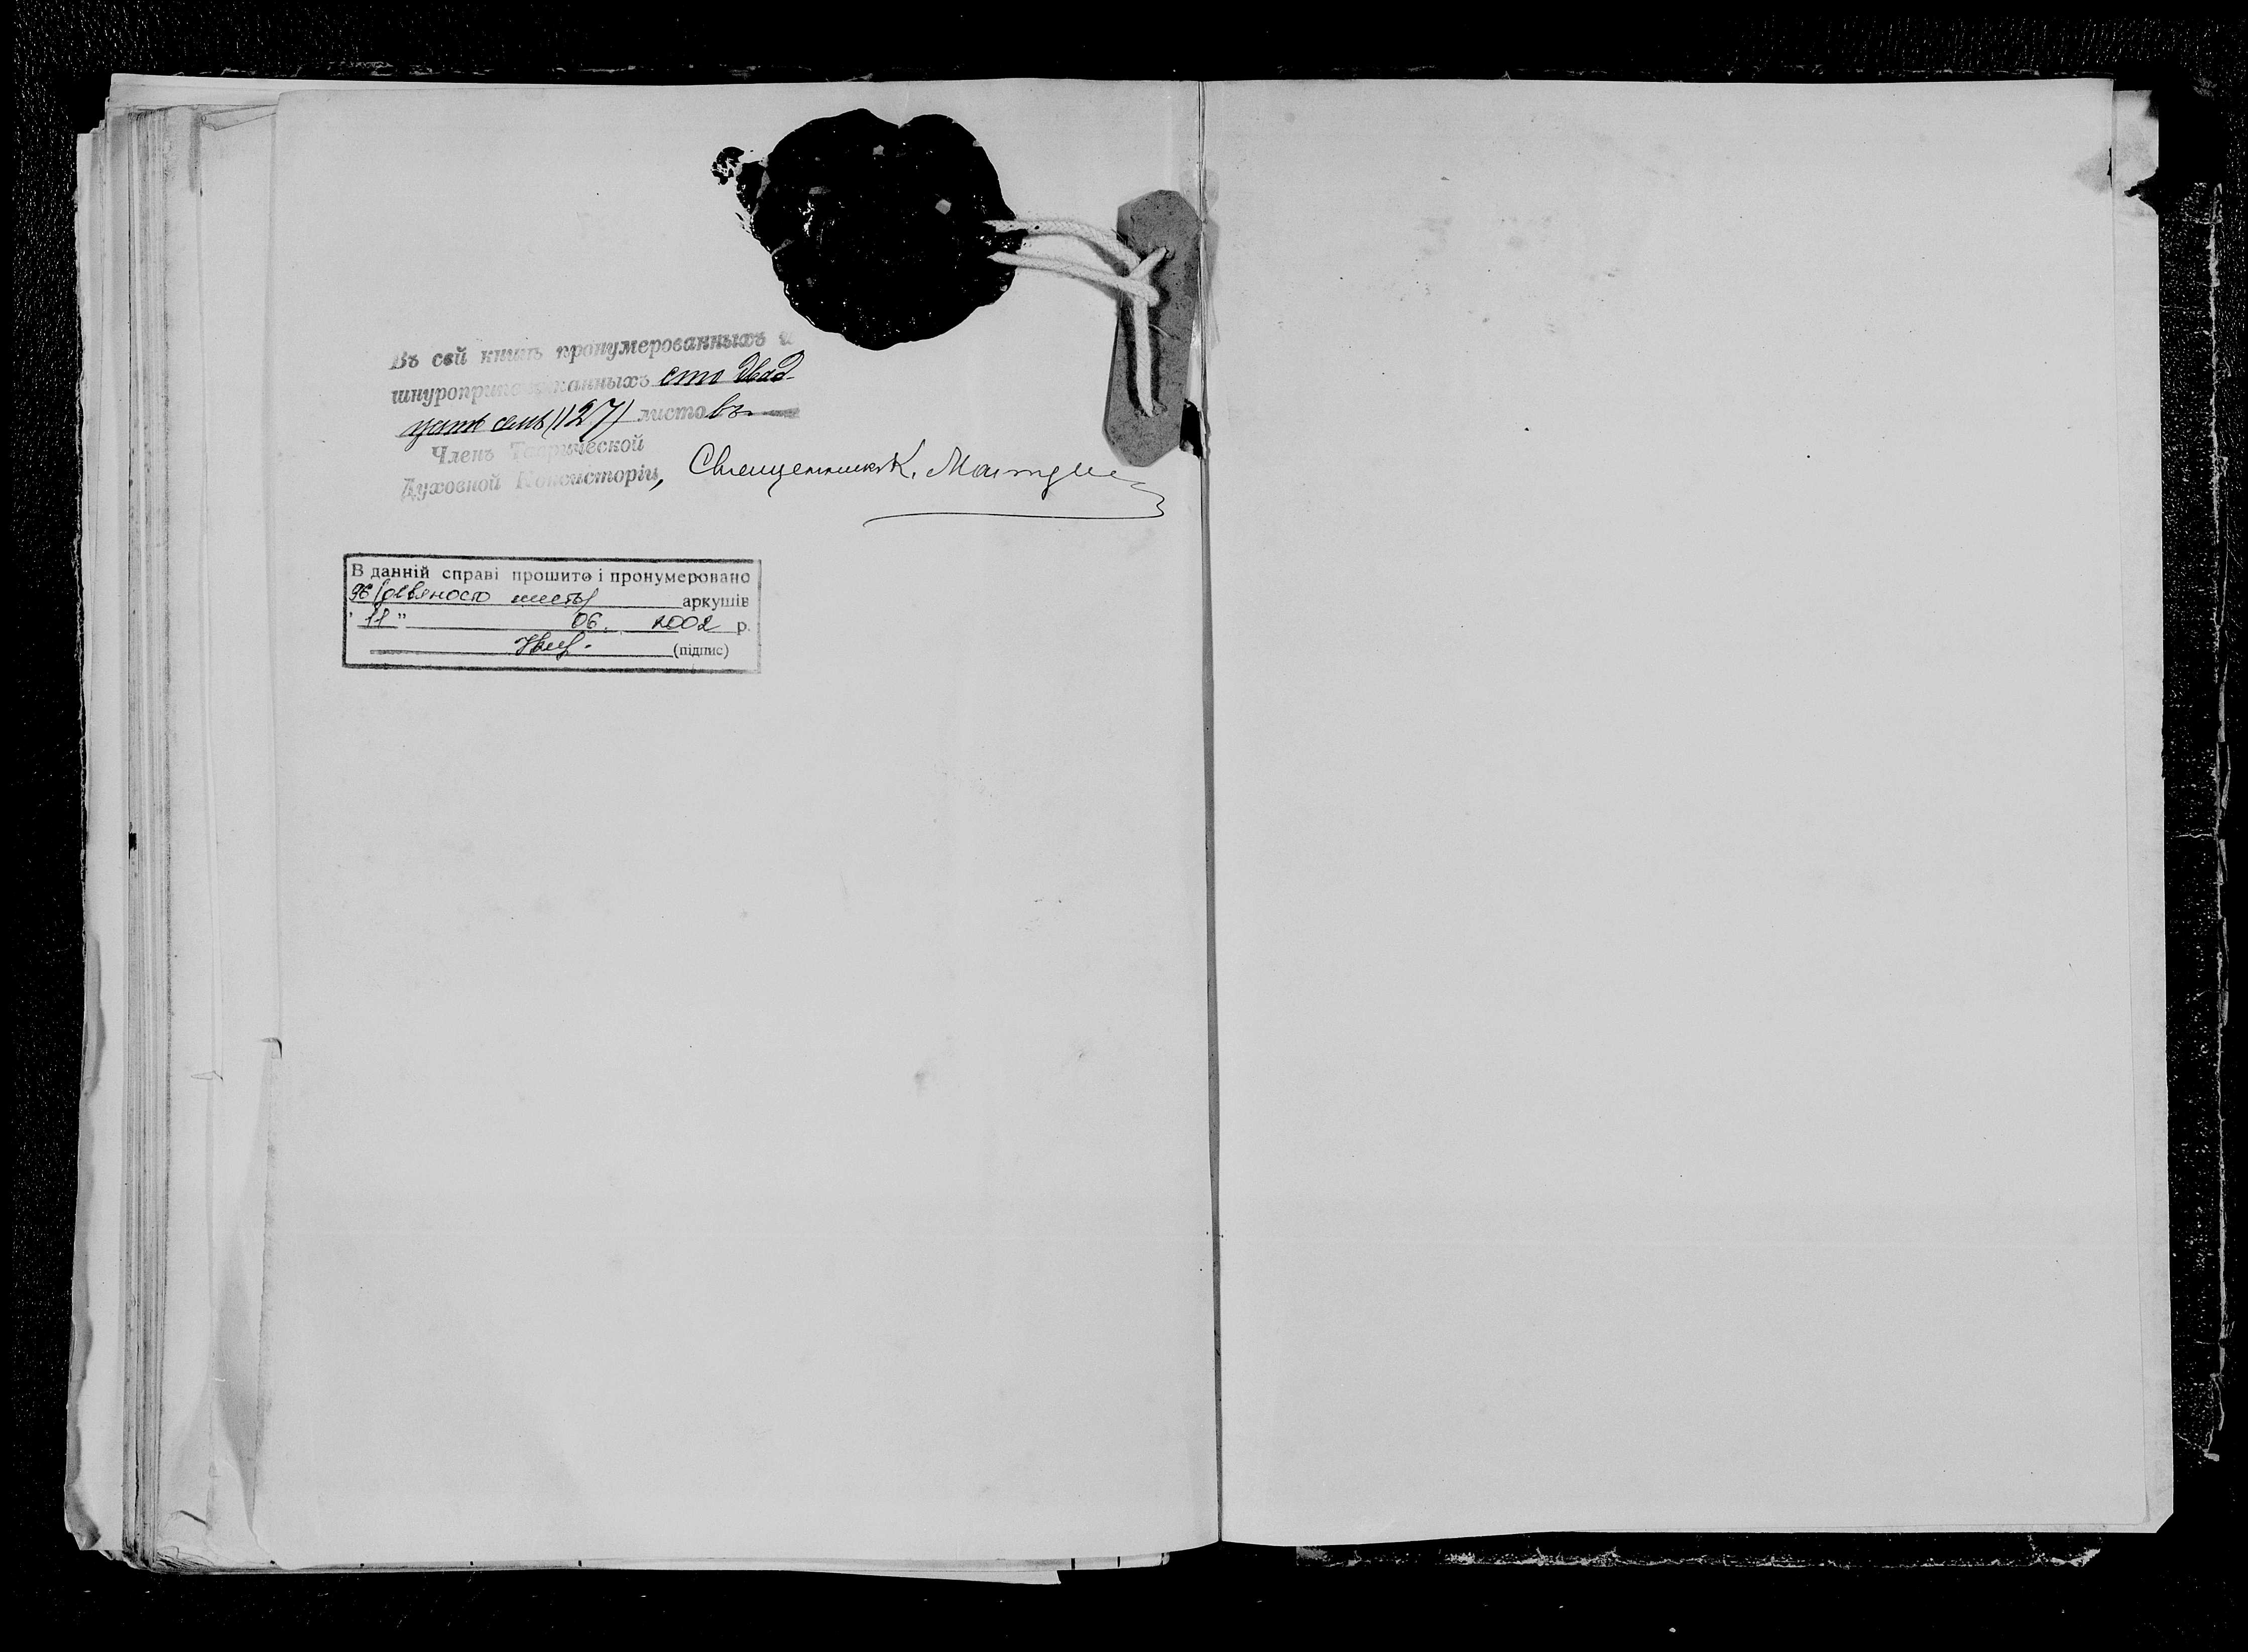 Въ сей книгѣ пронумерованныхъ и
шнуроприпечатанныхъ сто двад-
цать семь (127) листовъ
Членъ Таврической
Духовной Консисторіи, Священникъ К.
В данній справі прошито і пронумеровано
96 (девяносто шесть) аркушів
" 11 " 06. 2002 р.
(підпис)